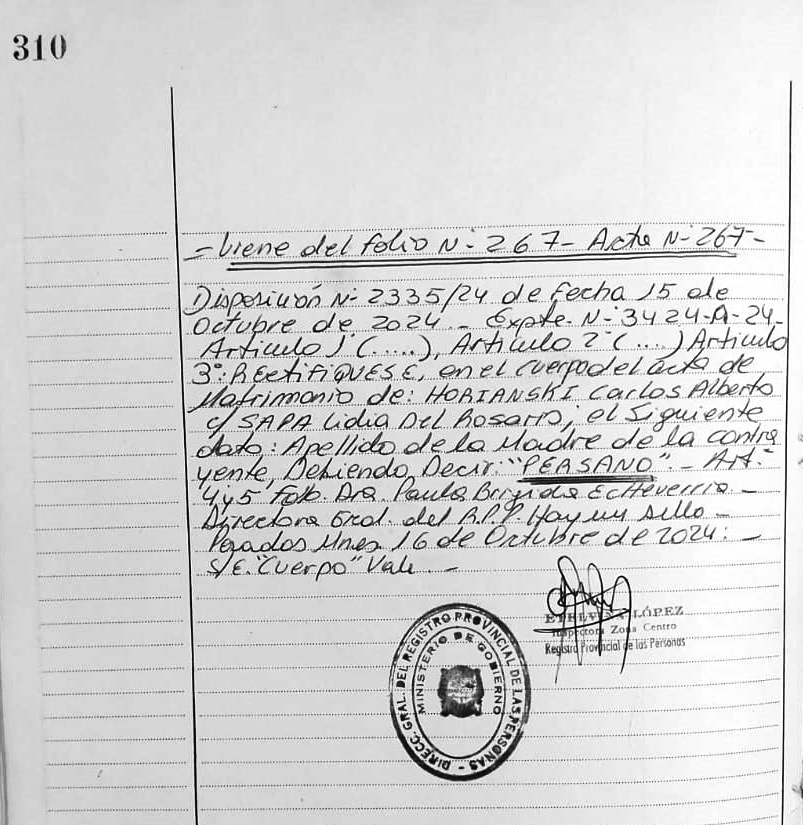 310
- Viene del folio N- 267- Acta N- 267-
Disposición N- 2335/24 de fecha 15 de
Octubre de 2024 - Expte. N- 3424-A-24-
Articulo 1° (.....), Articulo 2° (....) Articulo
3°: RECTIFIQUESE, en el cuerpo del acta de
Matrimonio de: HORIANSKI Carlos Alberto
c/ SAPA Lidia Del Rosario, el Siguiente
dato: Apellido de la Madre de la contra
yente, Debiendo Decir: "PERSANO". - Art.-
4y5 Fdo. Dra. Paula Brigida Echeverria -
Directora Gral. del R.P.P. Hay un sello -
Posadas Mnes. 16 de Octubre de 2024: -
S/E. "Cuerpo" Vale -
ETELVINA LÓPEZ
Inspectora Zona Centro
Registro Provincial de las Personas
DIRECC. GRAL. DEL REGISTRO PROVINCIAL DE LAS PERSONAS -
MINISTERIO DE GOBIERNO